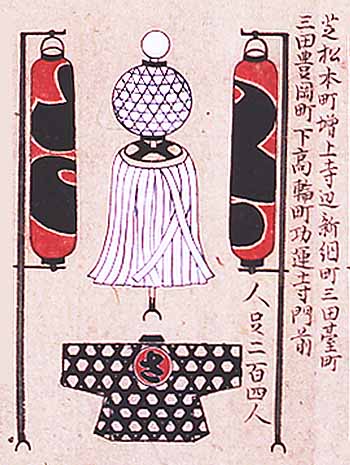 芝松本町増上寺辺新網町三田臺町
三田豊岡町下高輪町功運寺門前
人足二百四人
さ